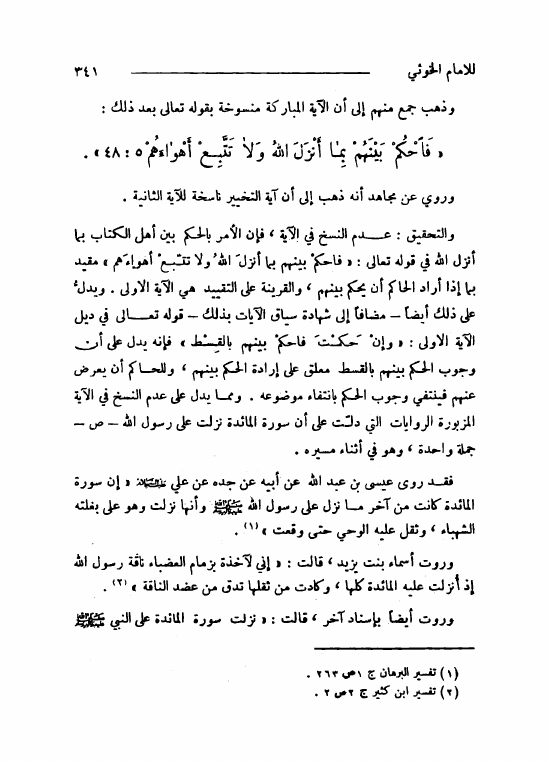 للامام الخوئي ٣٤١
وذهب جمع منهم إلى أن الآية المباركة منسوخة بقوله تعالى بعد ذلك :
« فَاحْكُمْ بَيْنَهُمْ بِمَا أَنْزَلَ اللهُ وَلاَ تَتَّبِعْ أَهْوَاءَهُمْ ٥ : ٤٨ » .
وروي عن مجاهد أنه ذهب إلى أن آية التخيير ناسخة للآية الثانية .
والتحقيق : عـــدم النسخ في الآية ، فإن الأمر بالحكم بين أهل الكتاب بما
أنزل الله في قوله تعالى : « فاحكمْ بينهم بما أنزلَ اللهُ ولا تتّبعْ أهواءَهم » مقيد
بما إذا أراد الحاكم أن يحكم بينهم ، والقرينة على التقييد هي الآية الاولى . ويدلُّ
على ذلك أيضاً – مضافاً إلى شهادة سياق الآيات بذلك – قوله تعـــالى في ذيل
الآية الاولى : « وإنْ حَكمْتَ فاحكمْ بينهم بالقِسْط » فإنه يدل على أن
وجوب الحكم بينهم بالقسط معلق على إرادة الحكم بينهم ، وللحاكم أن يعرض
عنهم فينتفي وجوب الحكم بانتفاء موضوعه . وممـا يدل على عدم النسخ في الآية
المزبورة الروايات التي دلت على أن سورة المائدة نزلت على رسول الله – ص –
جملة واحدة ، وهو في أثناء مسيره .
فقـد روى عيسى بن عبد الله عن أبيه عن جده عن علي عليه السلام « إن سورة
المائدة كانت من آخر مـا نزل على رسول الله ﷺ وأنها نزلت وهو على بغلته
الشهباء ، وثقل عليه الوحي حتى وقعت » (١) .
وروت أسماء بنت يزيد ، قالت : « إني لآخذة بزمام العضباء ناقة رسول الله
إذ أُنزلت عليه المائدة كلها ، وكادت من ثقلها تدق من عضد الناقة » (٢) .
وروت أيضاً بإسناد آخر ، قالت : « نزلت سورة المائدة على النبي ﷺ
(١) تفسير البرهان ج ١ ص ٢٦٣ .
(٢) تفسير ابن كثير ج ٢ ص ٢ .